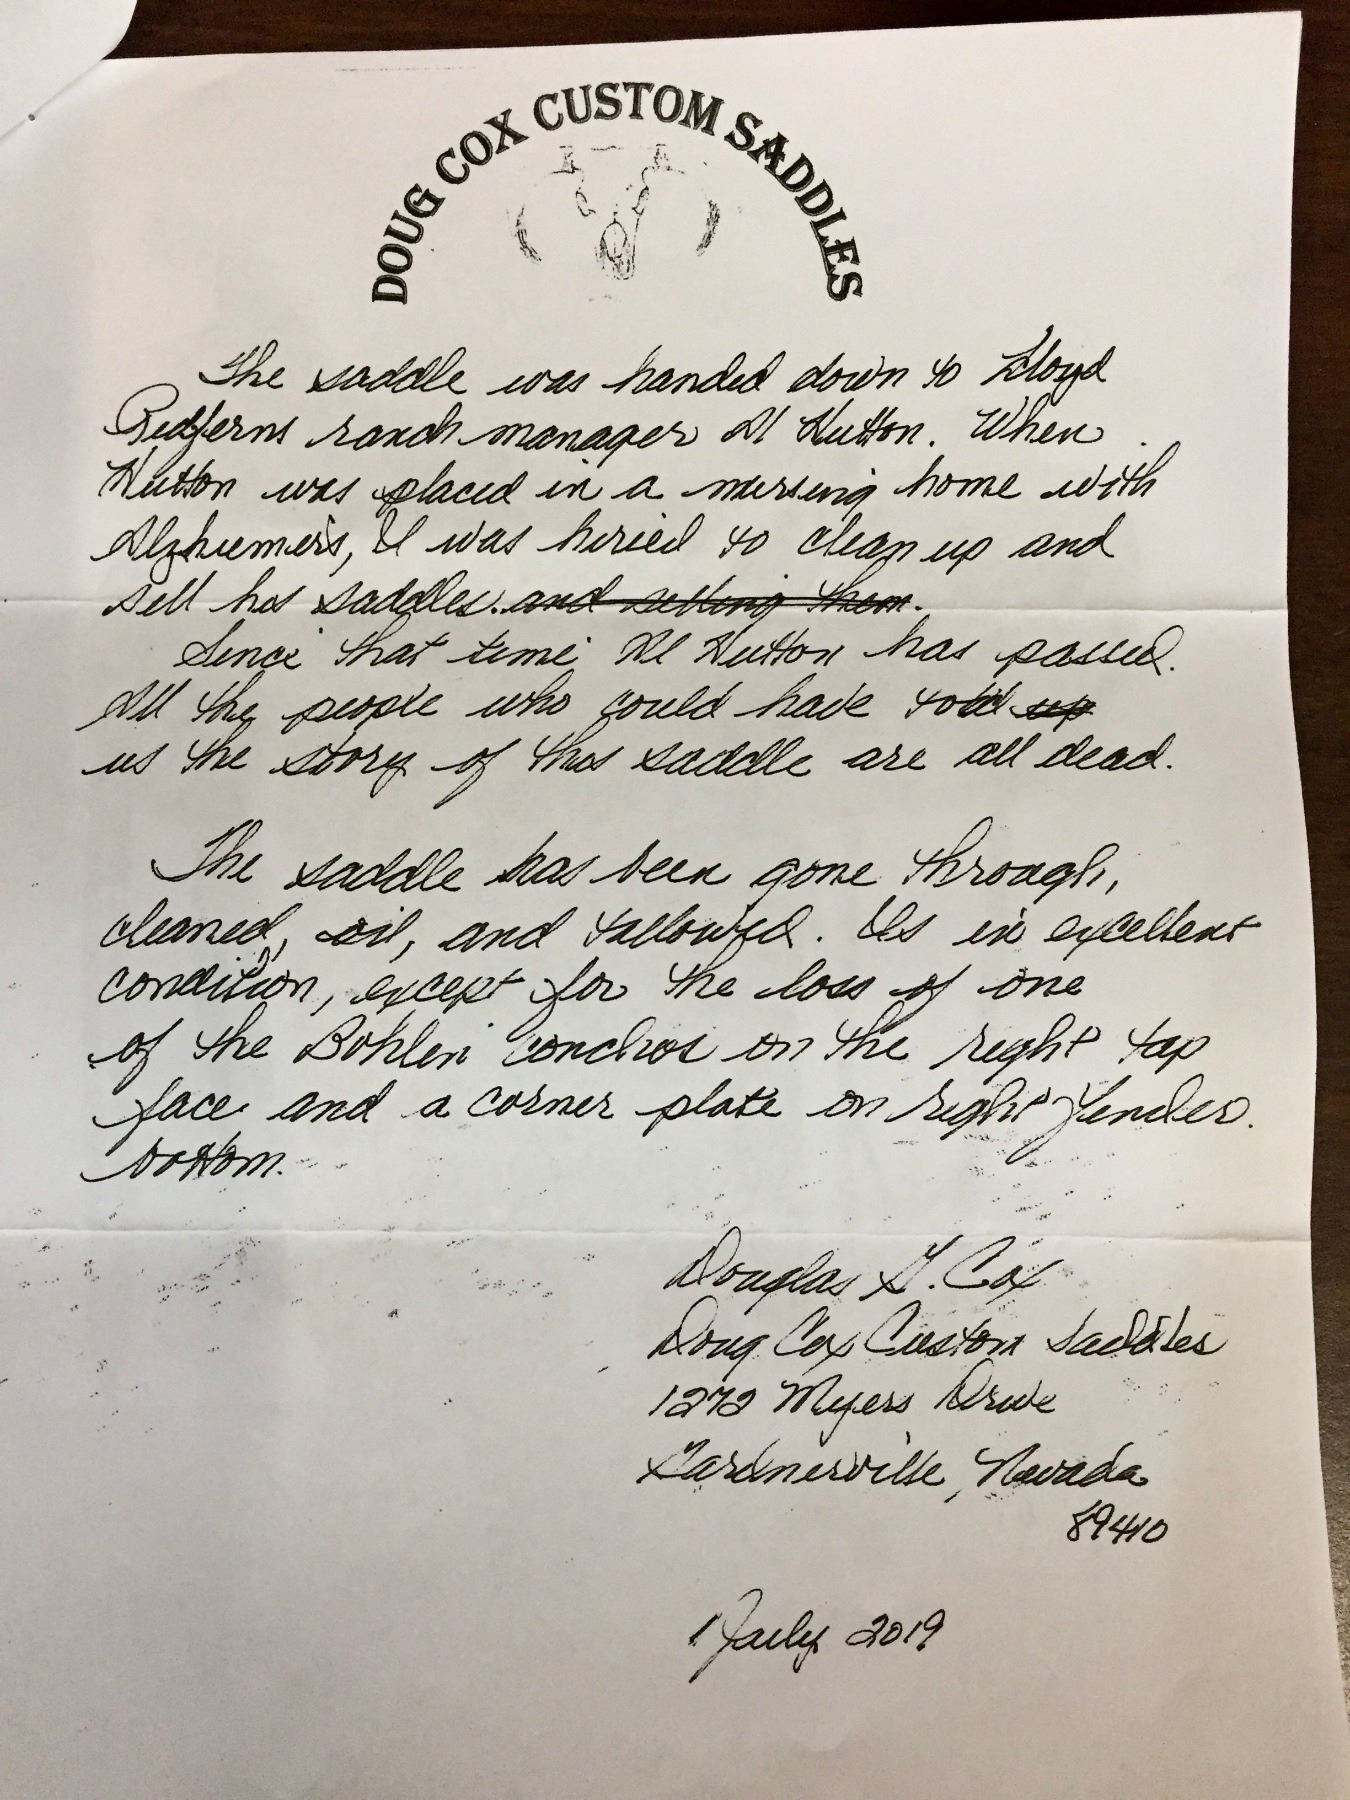 DOUG COX CUSTOM SADDLES
The saddle was handed down to Lloyd
Redferns ranch manager Al Hutton. When
Hutton was placed in a nursing home with
Alzhiemers, I was hiried to clean up and
sell his saddles. and selling them.
Since that time Al Hutton has passed.
All the people who could have told up
us the story of this saddle are all dead.
The saddle has been gone through,
cleaned, oil, and tallowed. Its in excellent
condition, except for the loss of one
of the Bohlin conchos on the right tap
face and a corner plate on right fender.
bottom.
Douglas G. Cox
Doug Cox Custom Saddles
1272 Myers Drive
Gardnerville, Nevada
89410
1 July 2019